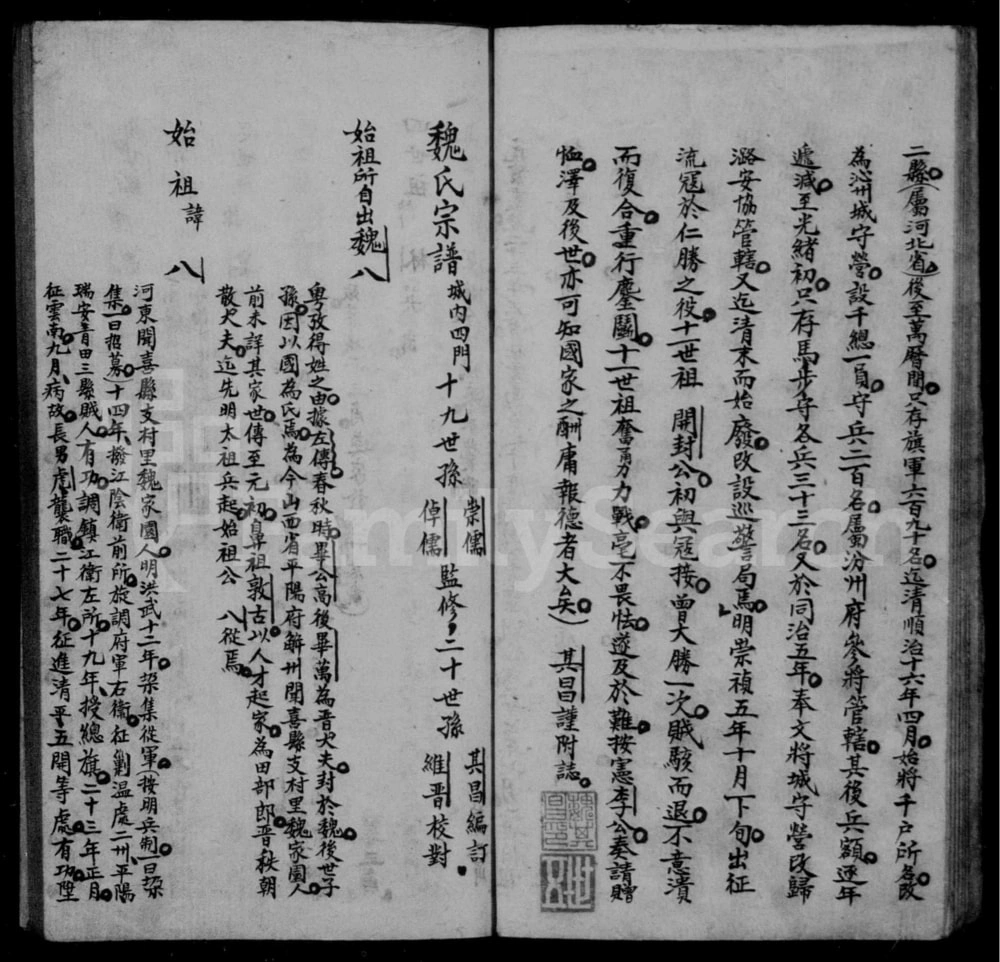 二縣(屬河北省)後至萬曆間只存旗軍六百九十名迄清順治十六年四月始將千戶所各改
為沁州城守營設千總一員守兵二百名屬汾州府參將管轄其後兵額逐年
遞減至光緒初只存馬步守各兵三十三名又於同治五年奉文將城守營改歸
潞安協管轄又迄清末而始廢改設巡警局焉明崇禎五年十月下旬出征
流寇於仁勝之役十一世祖 開封公初與寇接曾大勝一次賊駭而退不意潰
而復合重行鏖鬬十一世祖奮勇力戰毫不畏怯遂及於難按憲李公奏請贈
恤澤及後世亦可知國家之酬庸報德者大矣) 其昌謹附誌
魏氏宗譜 城內四門十九世孫 崇儒 倬儒 監修 二十世孫 其昌編訂 維晋校對
始祖所自出魏八
粵攷得姓之由據左傳春秋時畢公高後畢萬為晋大夫封於魏後世子
孫因以國為氏焉為今山西省平陽府解州聞喜縣支村里魏家園人
前未詳其家世傳至元初鼻祖敦古以人才起家為田部郎晋秩朝
散大夫迄先明太祖兵起始祖公 八從焉
始祖諱 八
河東聞喜縣支村里魏家園人明洪武十二年垜集從軍(按明兵制一曰垜
集一曰招募)十四年撥江陰衛前所旋調府軍右衛征剿温處二州平陽
瑞安青田三縣賊人有功調鎮江衛左所十九年授總旗二十三年正月
征雲南九月病故長男虎襲職二十七年征進清平五開等處有功陞
FamilySearch